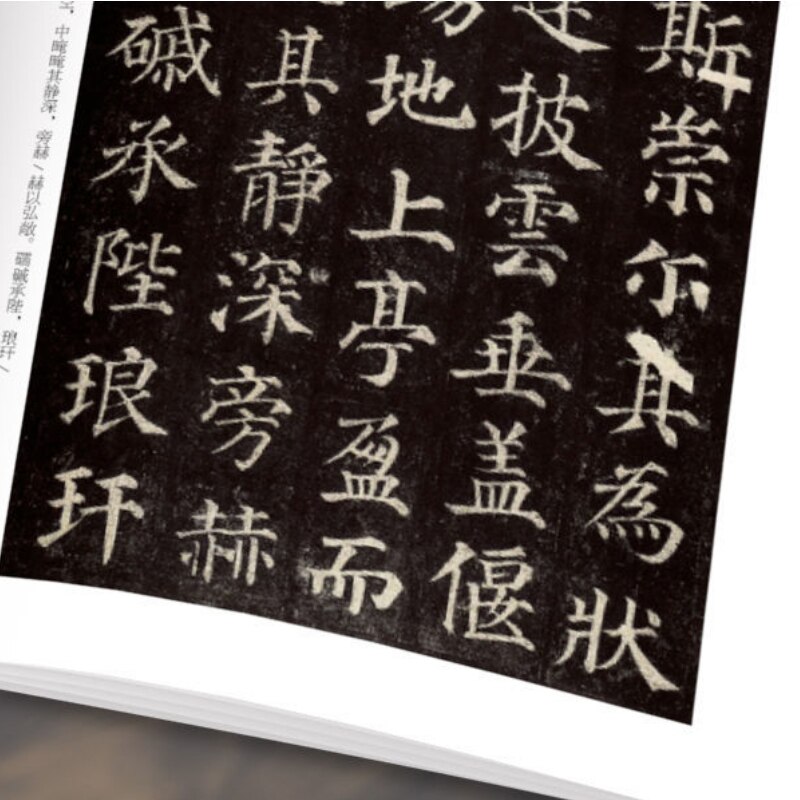 斯崇尔其為狀
披雲垂盖偃
地上亭盈而
其靜深旁赫
磩承陛琅玕
中晻晻其静深，旁赫／赫以弘敞。礝磩承陛，琅玕／